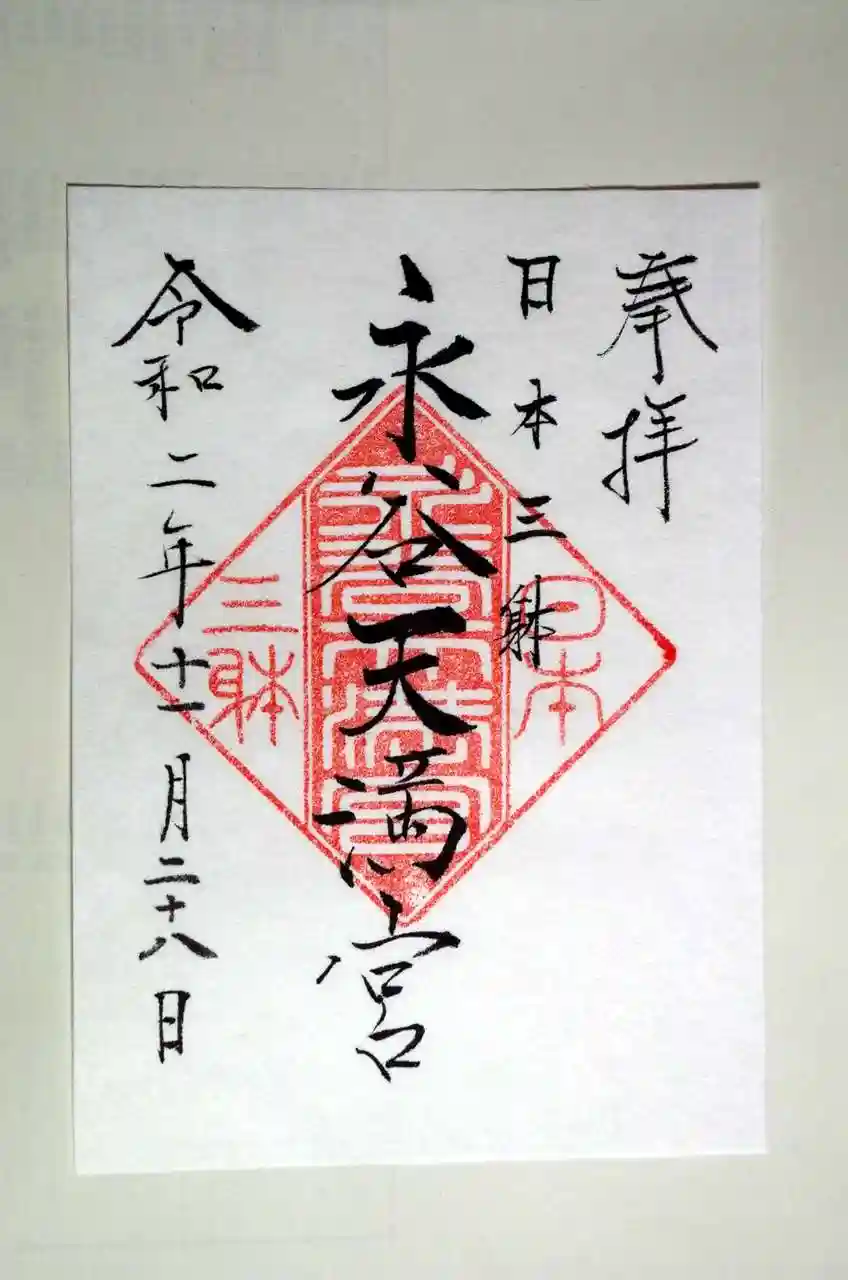 奉拝
日本三躰
永谷天満宮
令和二年十一月二十八日
日本
永谷天満宮
三躰